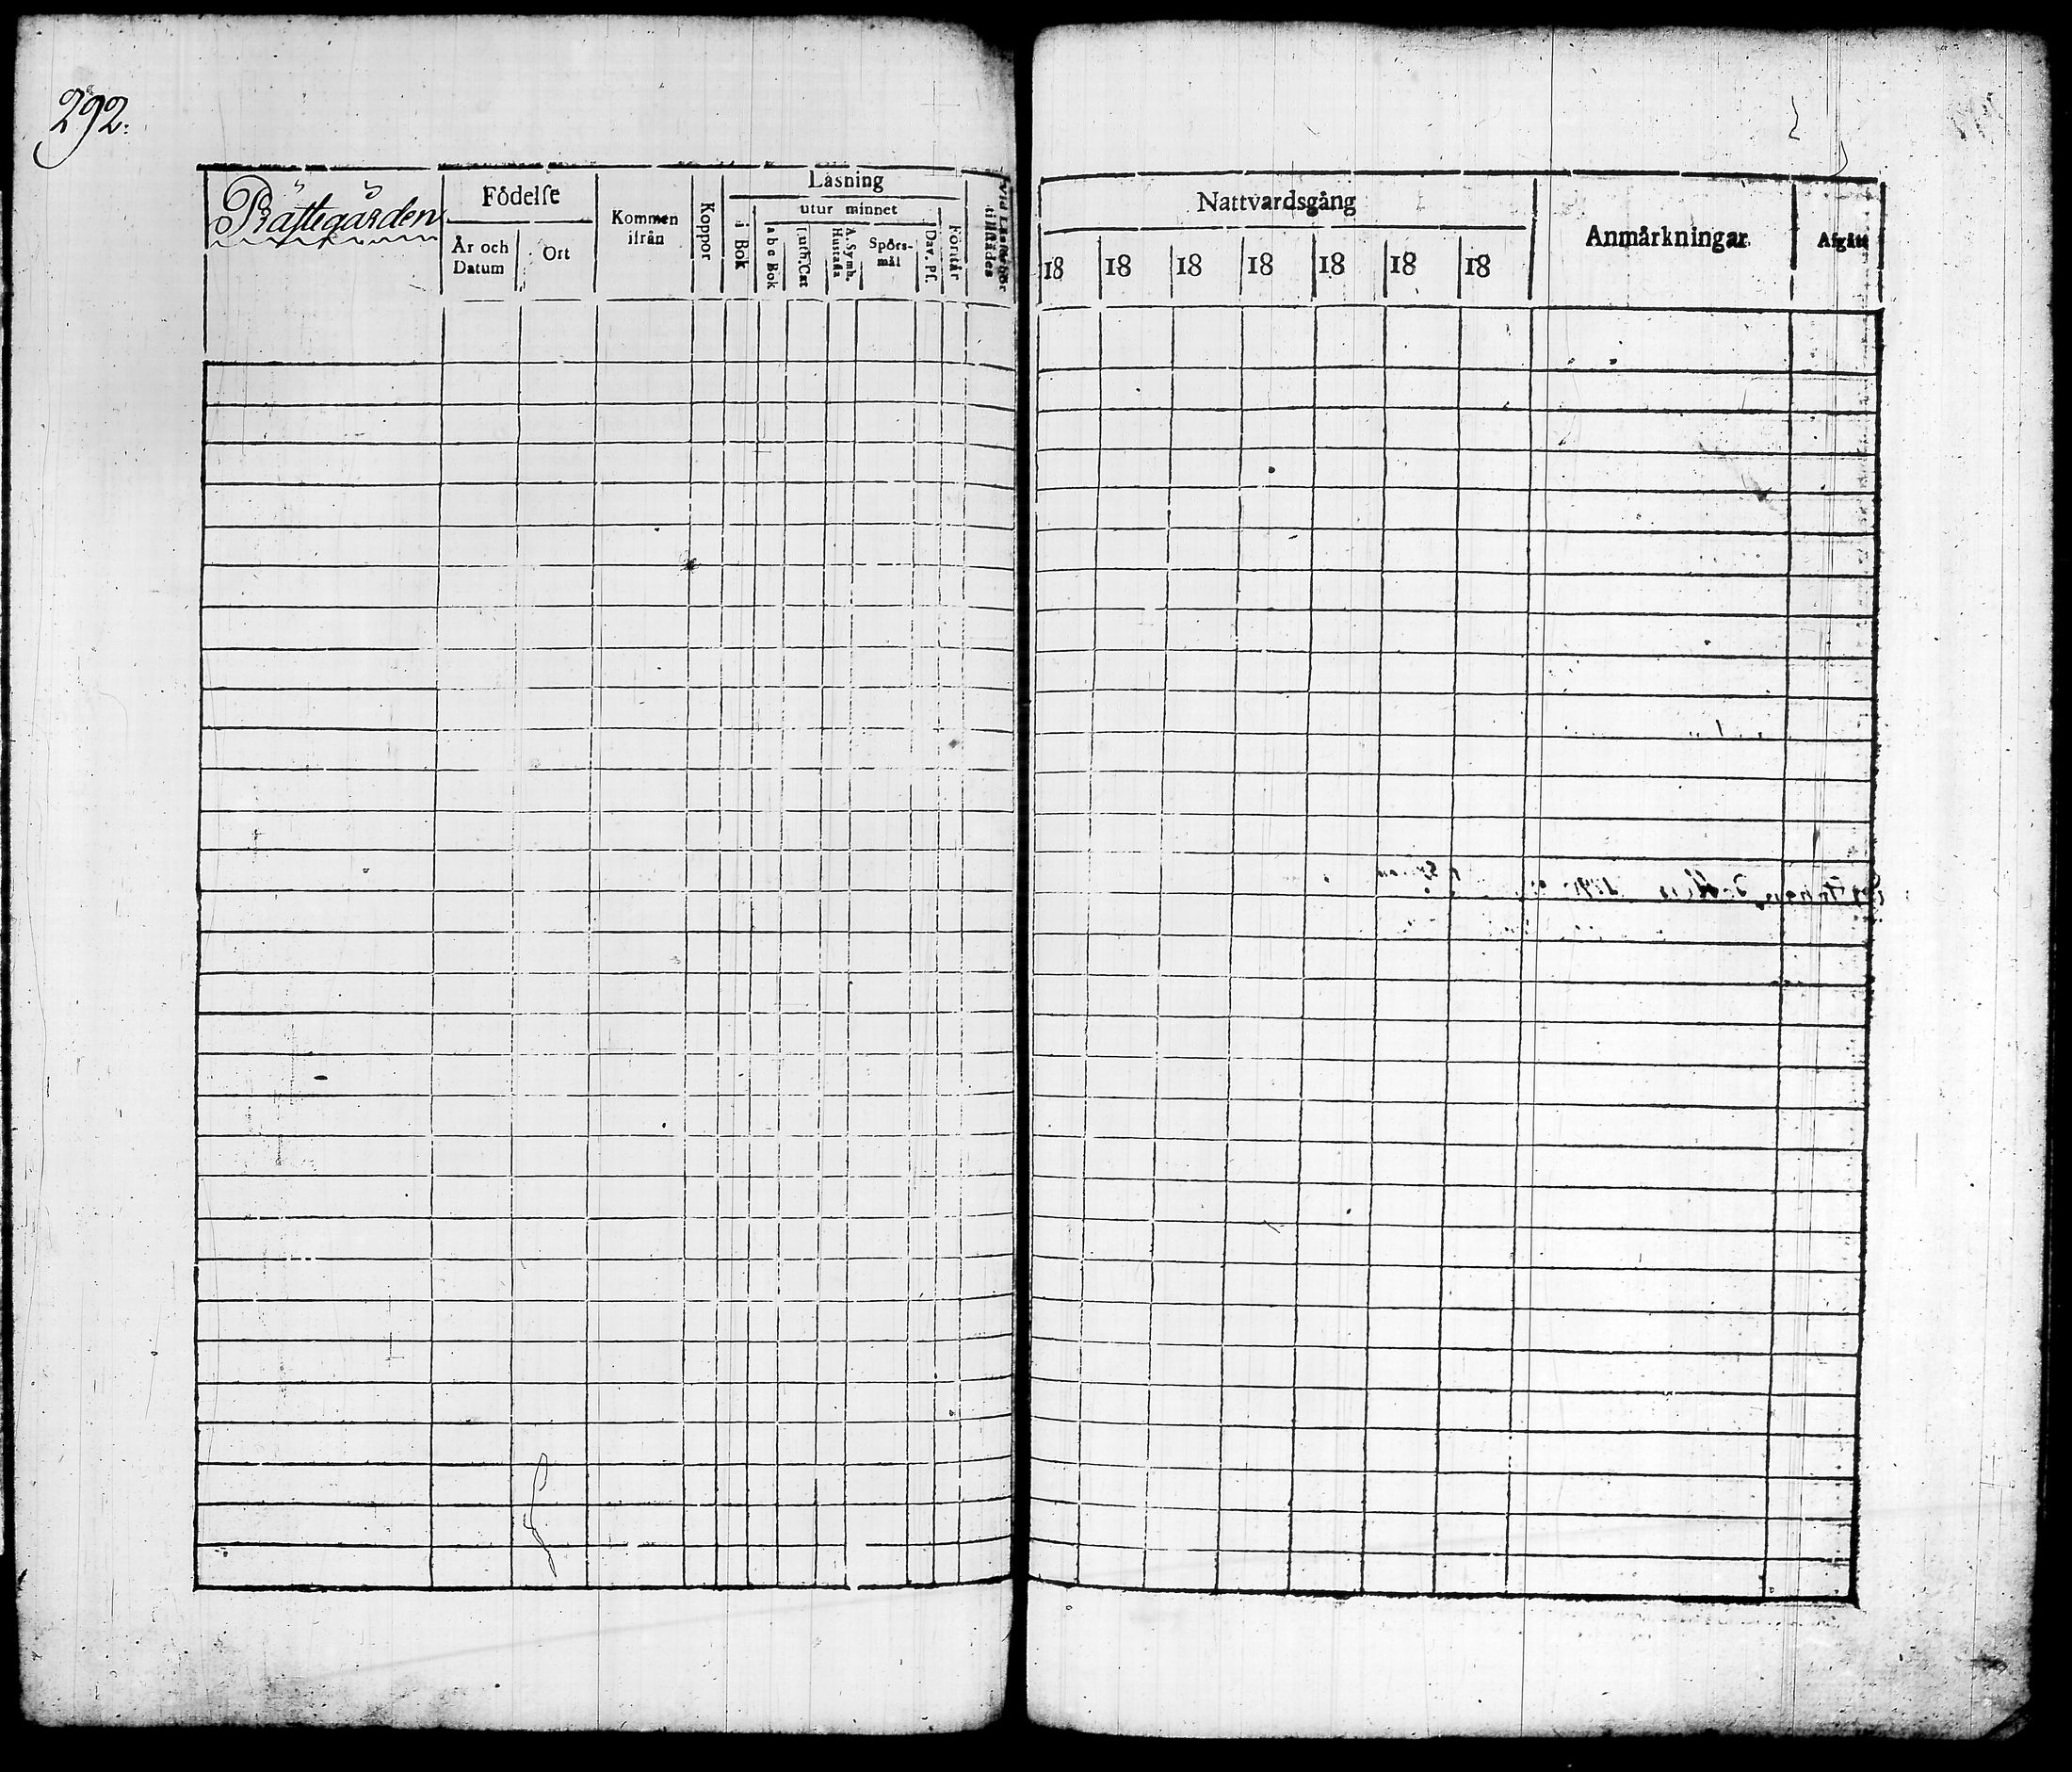 292.
Prästegården
Födelse
År och Datum
Ort
Kommen ifrån
Koppor
Läsning
i Bok
utur minnet
a b c Bok
Luth. Cat
A. Symb. Hustafla
Spörs-mål
Dav. Ps.
Förstår
Vid Läsförhör tillstädes
Nattvardsgång
18 18 18 18 18 18 18
Anmärkningar
Afgått